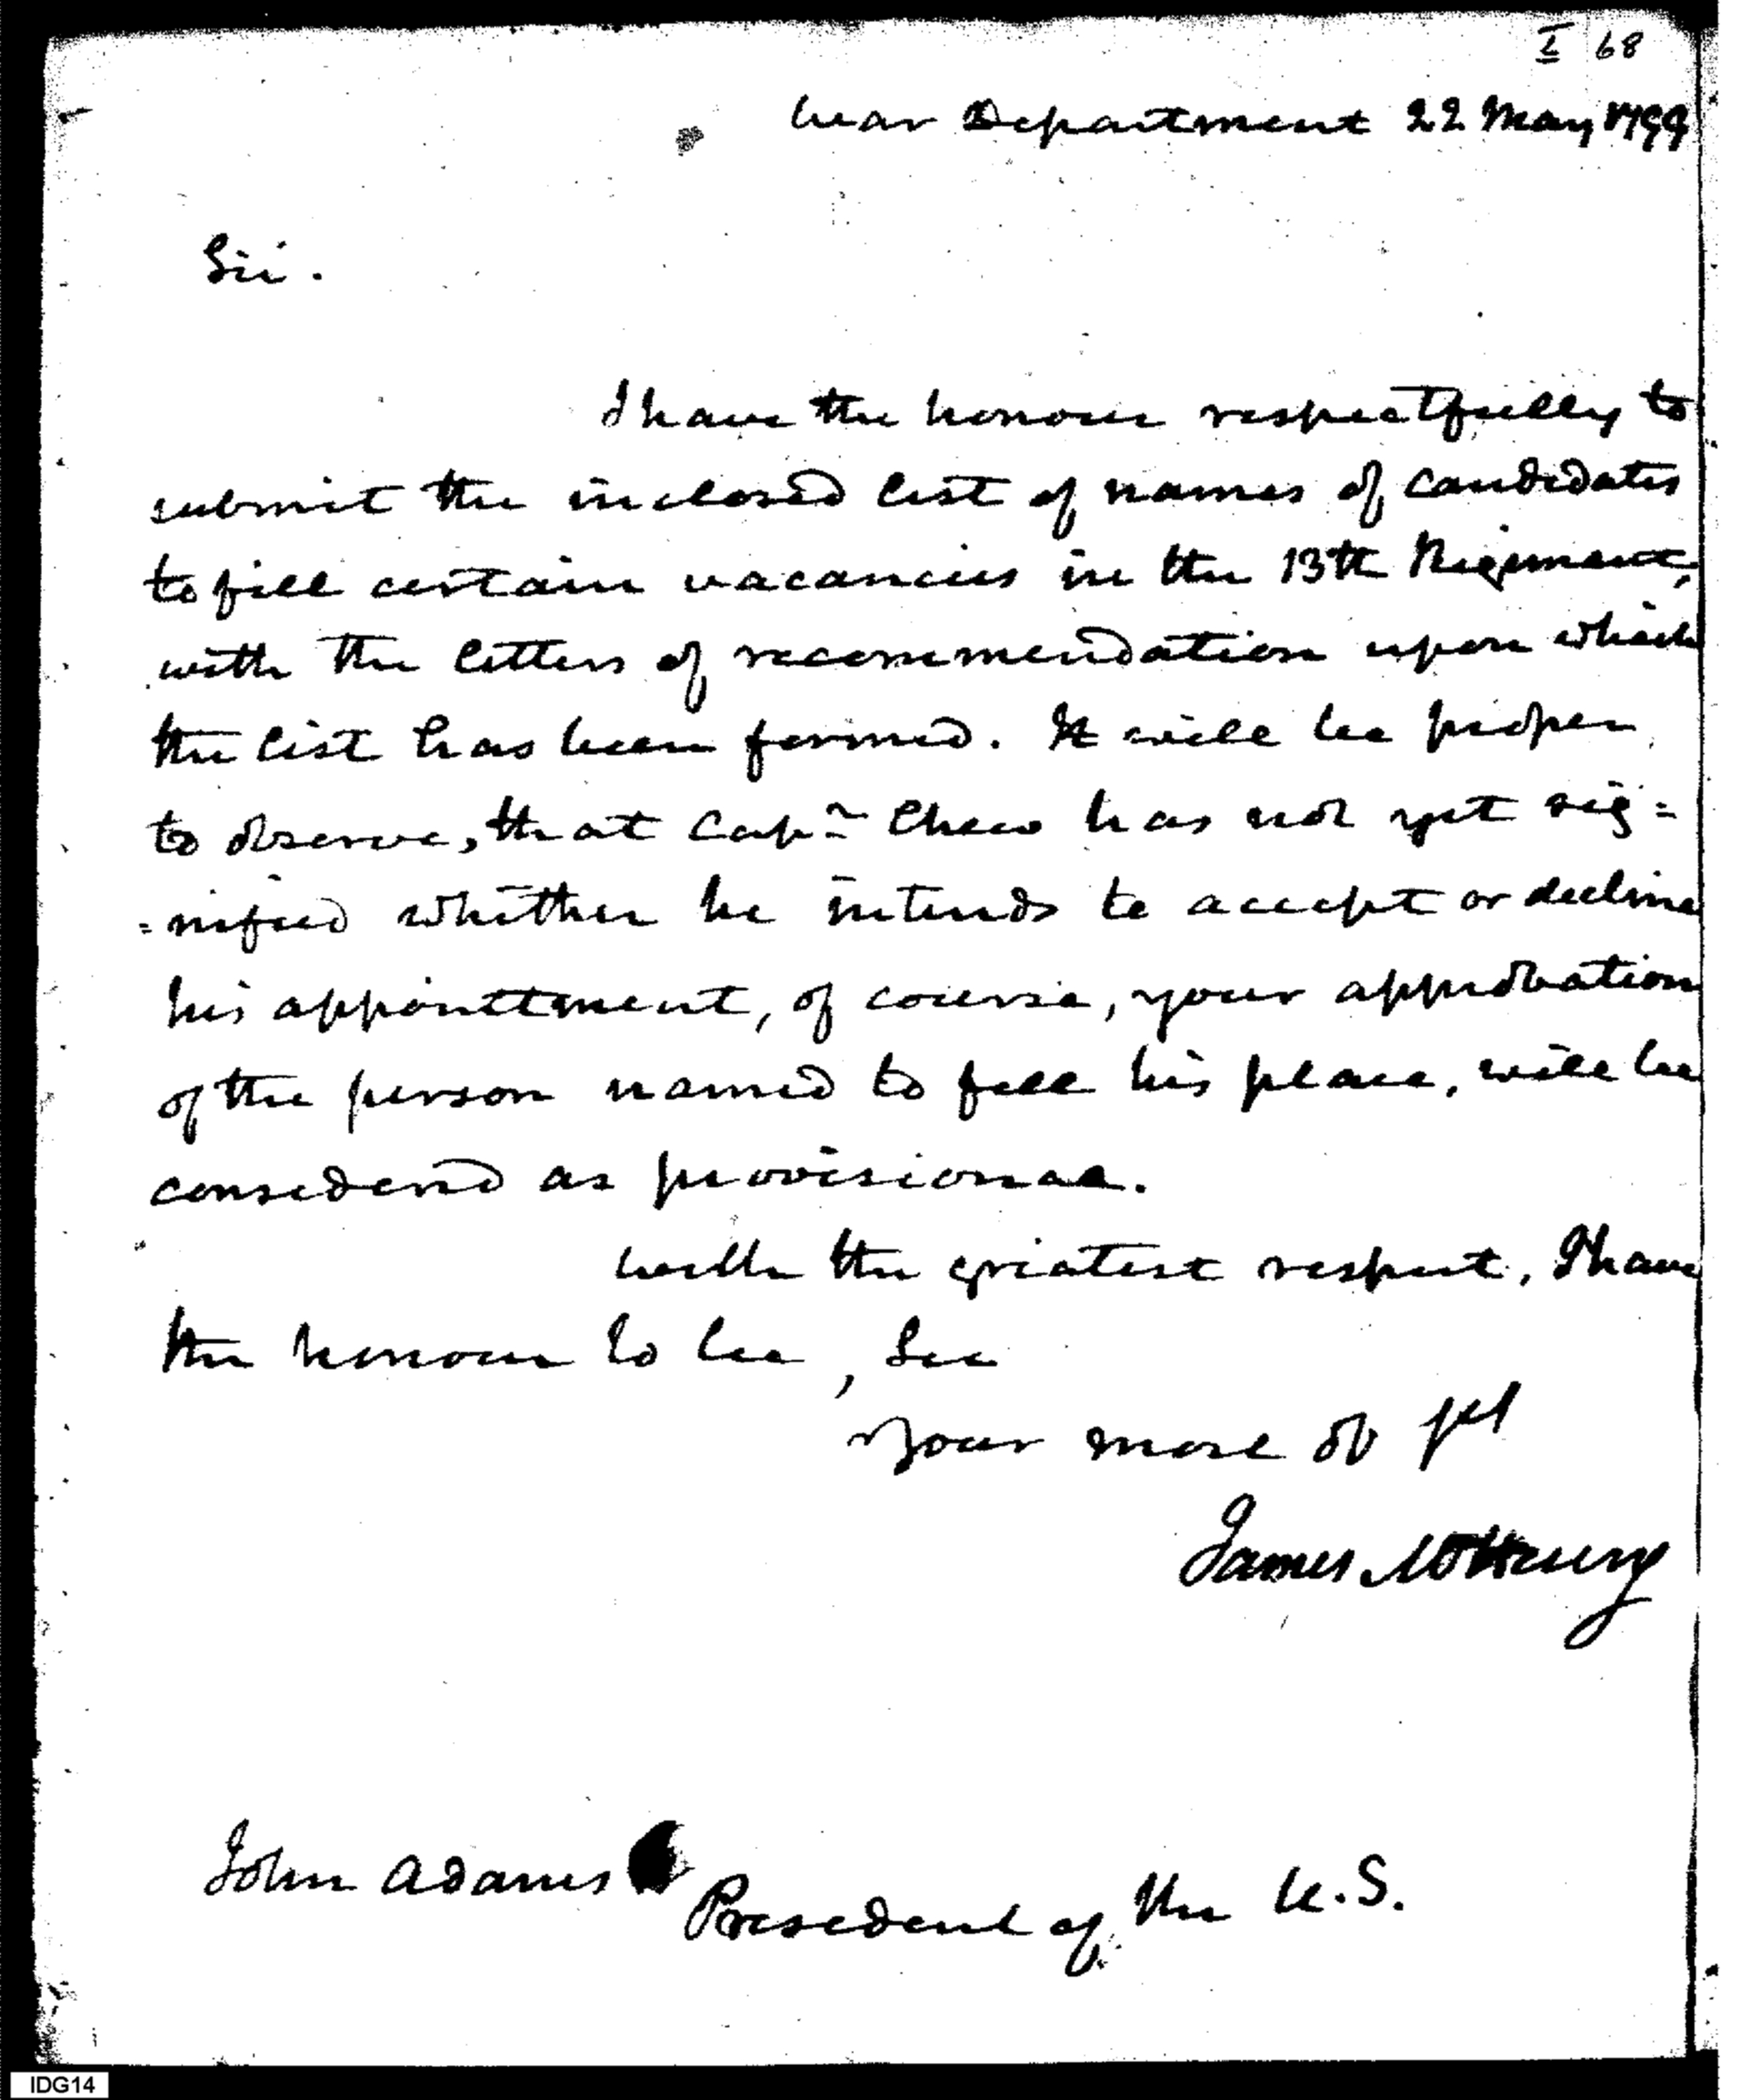 I 68
War Department 22 May 1799
Sir.
I have the honour respectfully to
submit the inclosed list of names of candidates
to fill certain vacancies in the 13th Regiment,
with the letters of recommendation upon which
the list has been formed. It will be proper
to observe, that Capn Chew has not yet sig=
=nified whether he intends to accept or decline
his appointtment, of course, your approbation
of the person named to fill his place, will be
considered as provisional.
With the greatest respect, I have
the honour to be, Sir
Your most ob St
James McHenry
John Adams
President of the U.S.
IDG14